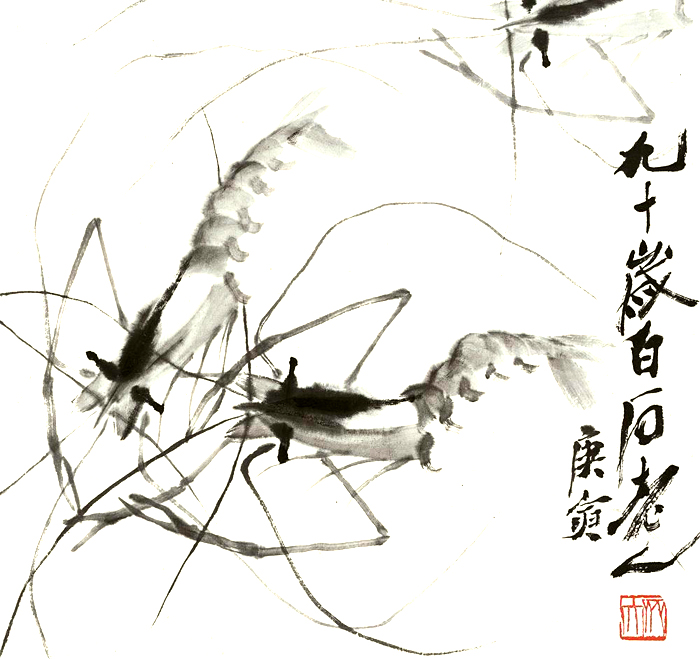 九十歲白石老人
庚寅